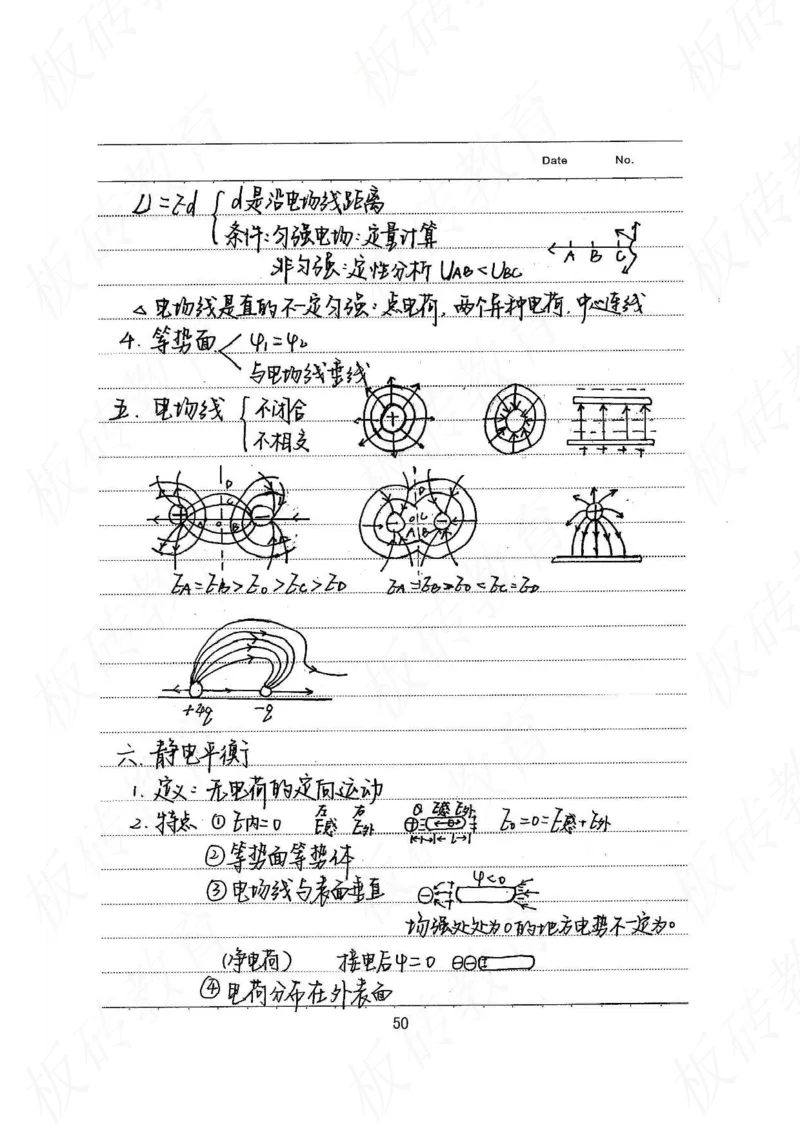 Date No.
U=Ed { d是沿电场线距离
条件:匀强电场:定量计算
非匀强:定性分析 UAB<UBC
A B C
△ 电场线是直的不一定匀强:点电荷,两个异种电荷,中心连线
4. 等势面 φ1=φ2
与电场线垂线
五. 电场线 { 不闭合
不相交
EA=EB>EO>EC>ED EA=EB>EO<EC=ED
+4q -q
六. 静电平衡
1. 定义:无电荷的定向运动
2. 特点 ① E内=0 左E感 右E外 Q E感 E外 E0=0=E感+E外
② 等势面等势体
③ 电场线与表面垂直 φ<0
场强处处为0的地方电势不一定为0
(净电荷) 接电后φ=0
④ 电荷分布在外表面
50
板砖教育